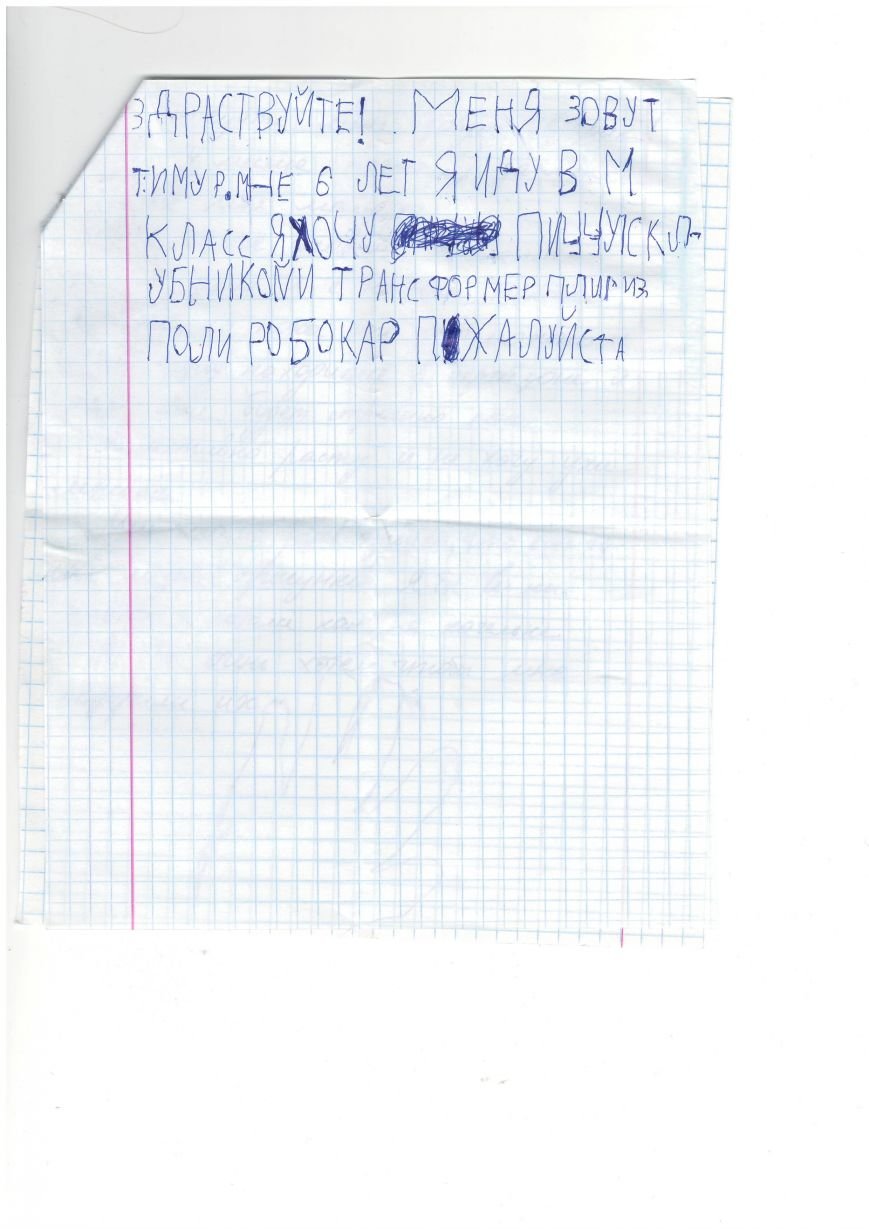 ЗДРАСТВУЙТЕ! МЕНЯ ЗОВУТ
ТИМУР. МНЕ 6 ЛЕТ Я ИДУ В М
КЛАСС Я ХОЧУ ПИЦЦУ С КЛ-
УБНИКОЙ И ТРАНСФОРМЕР ИЗ
ПОЛИ РОБОКАР ПЖАЛУЙСТА